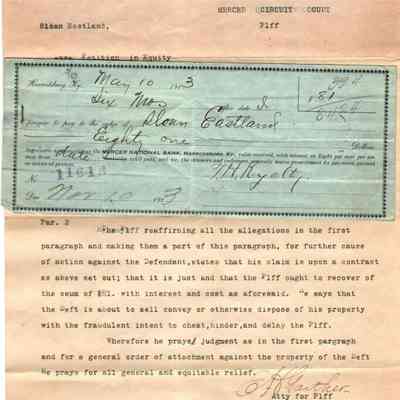 MERCER CIRCUIT COUT
Sloan Eastland, Plff
Petition in Equity
Harrodsburg Ky. May 10
Six Mos. after date I
promise to pay to the order of Sloan Eastland
Eighty one Dollars
MERCER NATIONAL BANK, HARRODSBURG, KY. value received, with interest at Eight per cent per an-
date until paid, and we, the
No 11613
Due Nov
Par. 2
The Plff reaffirming all the allegations in the first
paragraph and making them a part of this paragraph, for further cause
of action against the Defendant,states that his claim is upon a contract
as above set out; that it is just and that the Plff ought to recover of
the seum of $81. with interest and cost as aforesaid. He says that
the Deft is about to sell convey or otherwise dispose of his property
with the fraudulent intent to cheat,hinder,and delay the Plff.
Wherefore he prays judgment as in the first pargraph
and for a general order of attachment against the property of the Deft
He prays for all general and equitable relief.
Gaither
Atty for Plff